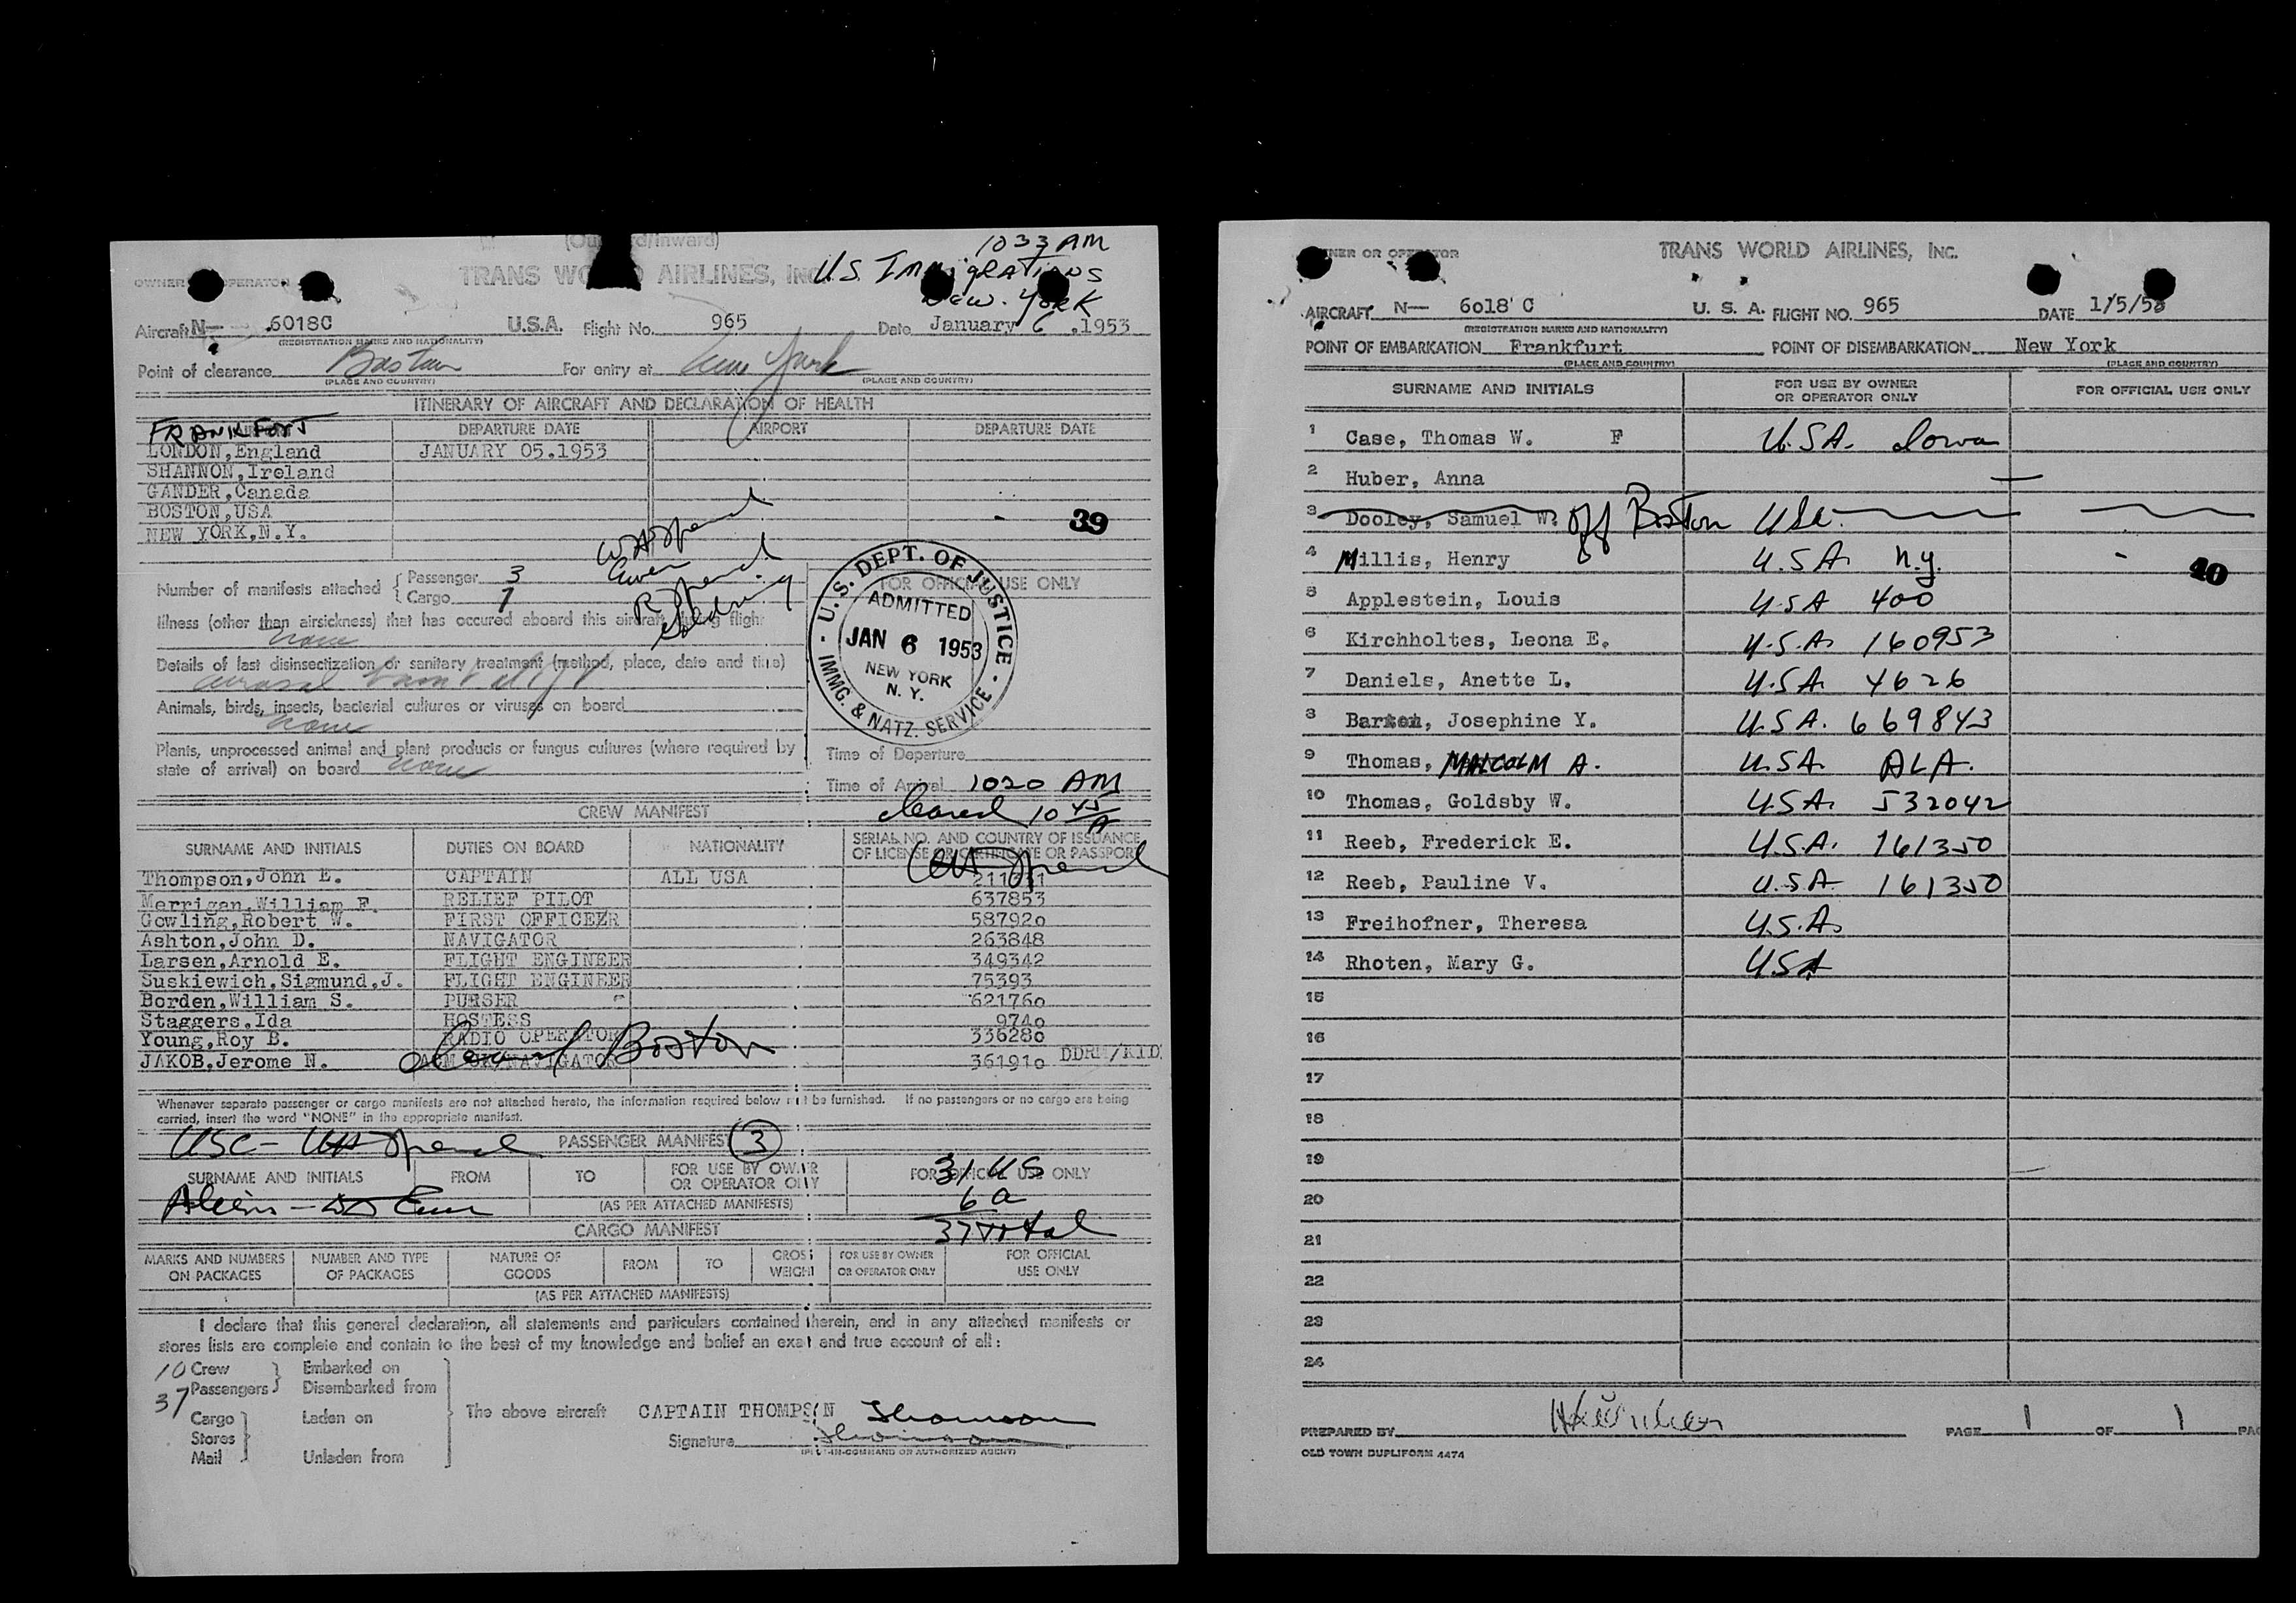 (Outward/Inward)
1033 AM
OWNER OPERATOR TRANS WORLD AIRLINES, INC U.S. Immigrations
New. York
Aircraft N— 6018C U.S.A. Flight No. 965 Date January 6 ,1953
(REGISTRATION MARKS AND NATIONALITY)
Point of clearance Boston For entry at New York
(PLACE AND COUNTRY) (PLACE AND COUNTRY)
ITINERARY OF AIRCRAFT AND DECLARATION OF HEALTH
FRANKFORT DEPARTURE DATE AIRPORT DEPARTURE DATE
LONDON,England JANUARY 05.1953
SHANNON,Ireland
GANDER,Canada
BOSTON,USA 39
NEW YORK,N.Y.
Number of manifests attached { Passenger 3
Cargo 1
FOR OFFICIAL USE ONLY
Illness (other than airsickness) that has occured aboard this aircraft during flight
none
Details of last disinsectization or sanitary treatment (method, place, date and time)
aerosol bomb
Animals, birds, insects, bacterial cultures or viruses on board
none
Plants, unprocessed animal and plant products or fungus cultures (where required by
state of arrival) on board none
U.S. DEPT. OF JUSTICE
ADMITTED
JAN 6 1953
NEW YORK
N. Y.
IMMG. & NATZ. SERVICE
Time of Departure
Time of Arrival 1020 AM
Cleared 10 45 A
CREW MANIFEST
SURNAME AND INITIALS DUTIES ON BOARD NATIONALITY SERIAL NO. AND COUNTRY OF ISSUANCE
OF LICENSE OR CERTIFICATE OR PASSPORT
Thompson,John E. CAPTAIN ALL USA
Merrigan,William F. RELIEF PILOT 637853
Gowling,Robert W. FIRST OFFICEER 587920
Ashton,John D. NAVIGATOR 263848
Larsen,Arnold E. FLIGHT ENGINEER 349342
Suskiewich,Sigmund,J. FLIGHT ENGINEER 75393
Borden,William S. PURSER 621760
Staggers,Ida HOSTESS 9740
Young,Roy B. RADIO OPERATOR 336280
JAKOB,Jerome N. 361910
Cleared Boston
Whenever separate passenger or cargo manifests are not attached hereto, the information required below must be furnished. If no passengers or no cargo are being
carried, insert the word "NONE" in the appropriate manifest.
USC - PASSENGER MANIFEST 3
SURNAME AND INITIALS FROM TO FOR USE BY OWNER
OR OPERATOR ONLY FOR OFFICIAL USE ONLY
31 US
6 a
Aliens - (AS PER ATTACHED MANIFESTS)
37 total
CARGO MANIFEST
MARKS AND NUMBERS
ON PACKAGES NUMBER AND TYPE
OF PACKAGES NATURE OF
GOODS FROM TO GROSS
WEIGHT FOR USE BY OWNER
OR OPERATOR ONLY FOR OFFICIAL
USE ONLY
(AS PER ATTACHED MANIFESTS)
I declare that this general declaration, all statements and particulars contained therein, and in any attached manifests or
stores lists are complete and contain to the best of my knowledge and belief an exact and true account of all:
10 Crew Embarked on
37 Passengers Disembarked from
Cargo Laden on The above aircraft CAPTAIN THOMPSON
Stores Signature
Mail Unladen from (PILOT-IN-COMMAND OR AUTHORIZED AGENT)
OWNER OR OPERATOR TRANS WORLD AIRLINES, INC.
AIRCRAFT N— 6018 C U. S. A. FLIGHT NO. 965 DATE 1/5/53
(REGISTRATION MARKS AND NATIONALITY)
POINT OF EMBARKATION Frankfurt POINT OF DISEMBARKATION New York
(PLACE AND COUNTRY) (PLACE AND COUNTRY)
SURNAME AND INITIALS FOR USE BY OWNER
OR OPERATOR ONLY FOR OFFICIAL USE ONLY
1 Case, Thomas W. F U.S.A. Iowa
2 Huber, Anna —
3 Dooley, Samuel W. off Boston USA
4 Millis, Henry U.S.A. N.Y. 40
5 Applestein, Louis U.S.A 400
6 Kirchholtes, Leona E. U.S.A. 160953
7 Daniels, Anette L. U.S.A. 4626
8 Barton, Josephine Y. U.S.A. 669843
9 Thomas, MALCOLM A. U.S.A. ALA.
10 Thomas, Goldsby W. U.S.A. 532042
11 Reeb, Frederick E. U.S.A. 161350
12 Reeb, Pauline V. U.S.A. 161350
13 Freihofner, Theresa U.S.A.
14 Rhoten, Mary G. USA
15
16
17
18
19
20
21
22
23
24
PREPARED BY PAGE 1 OF 1 PAG
OLD TOWN DUPLIFORM 4474